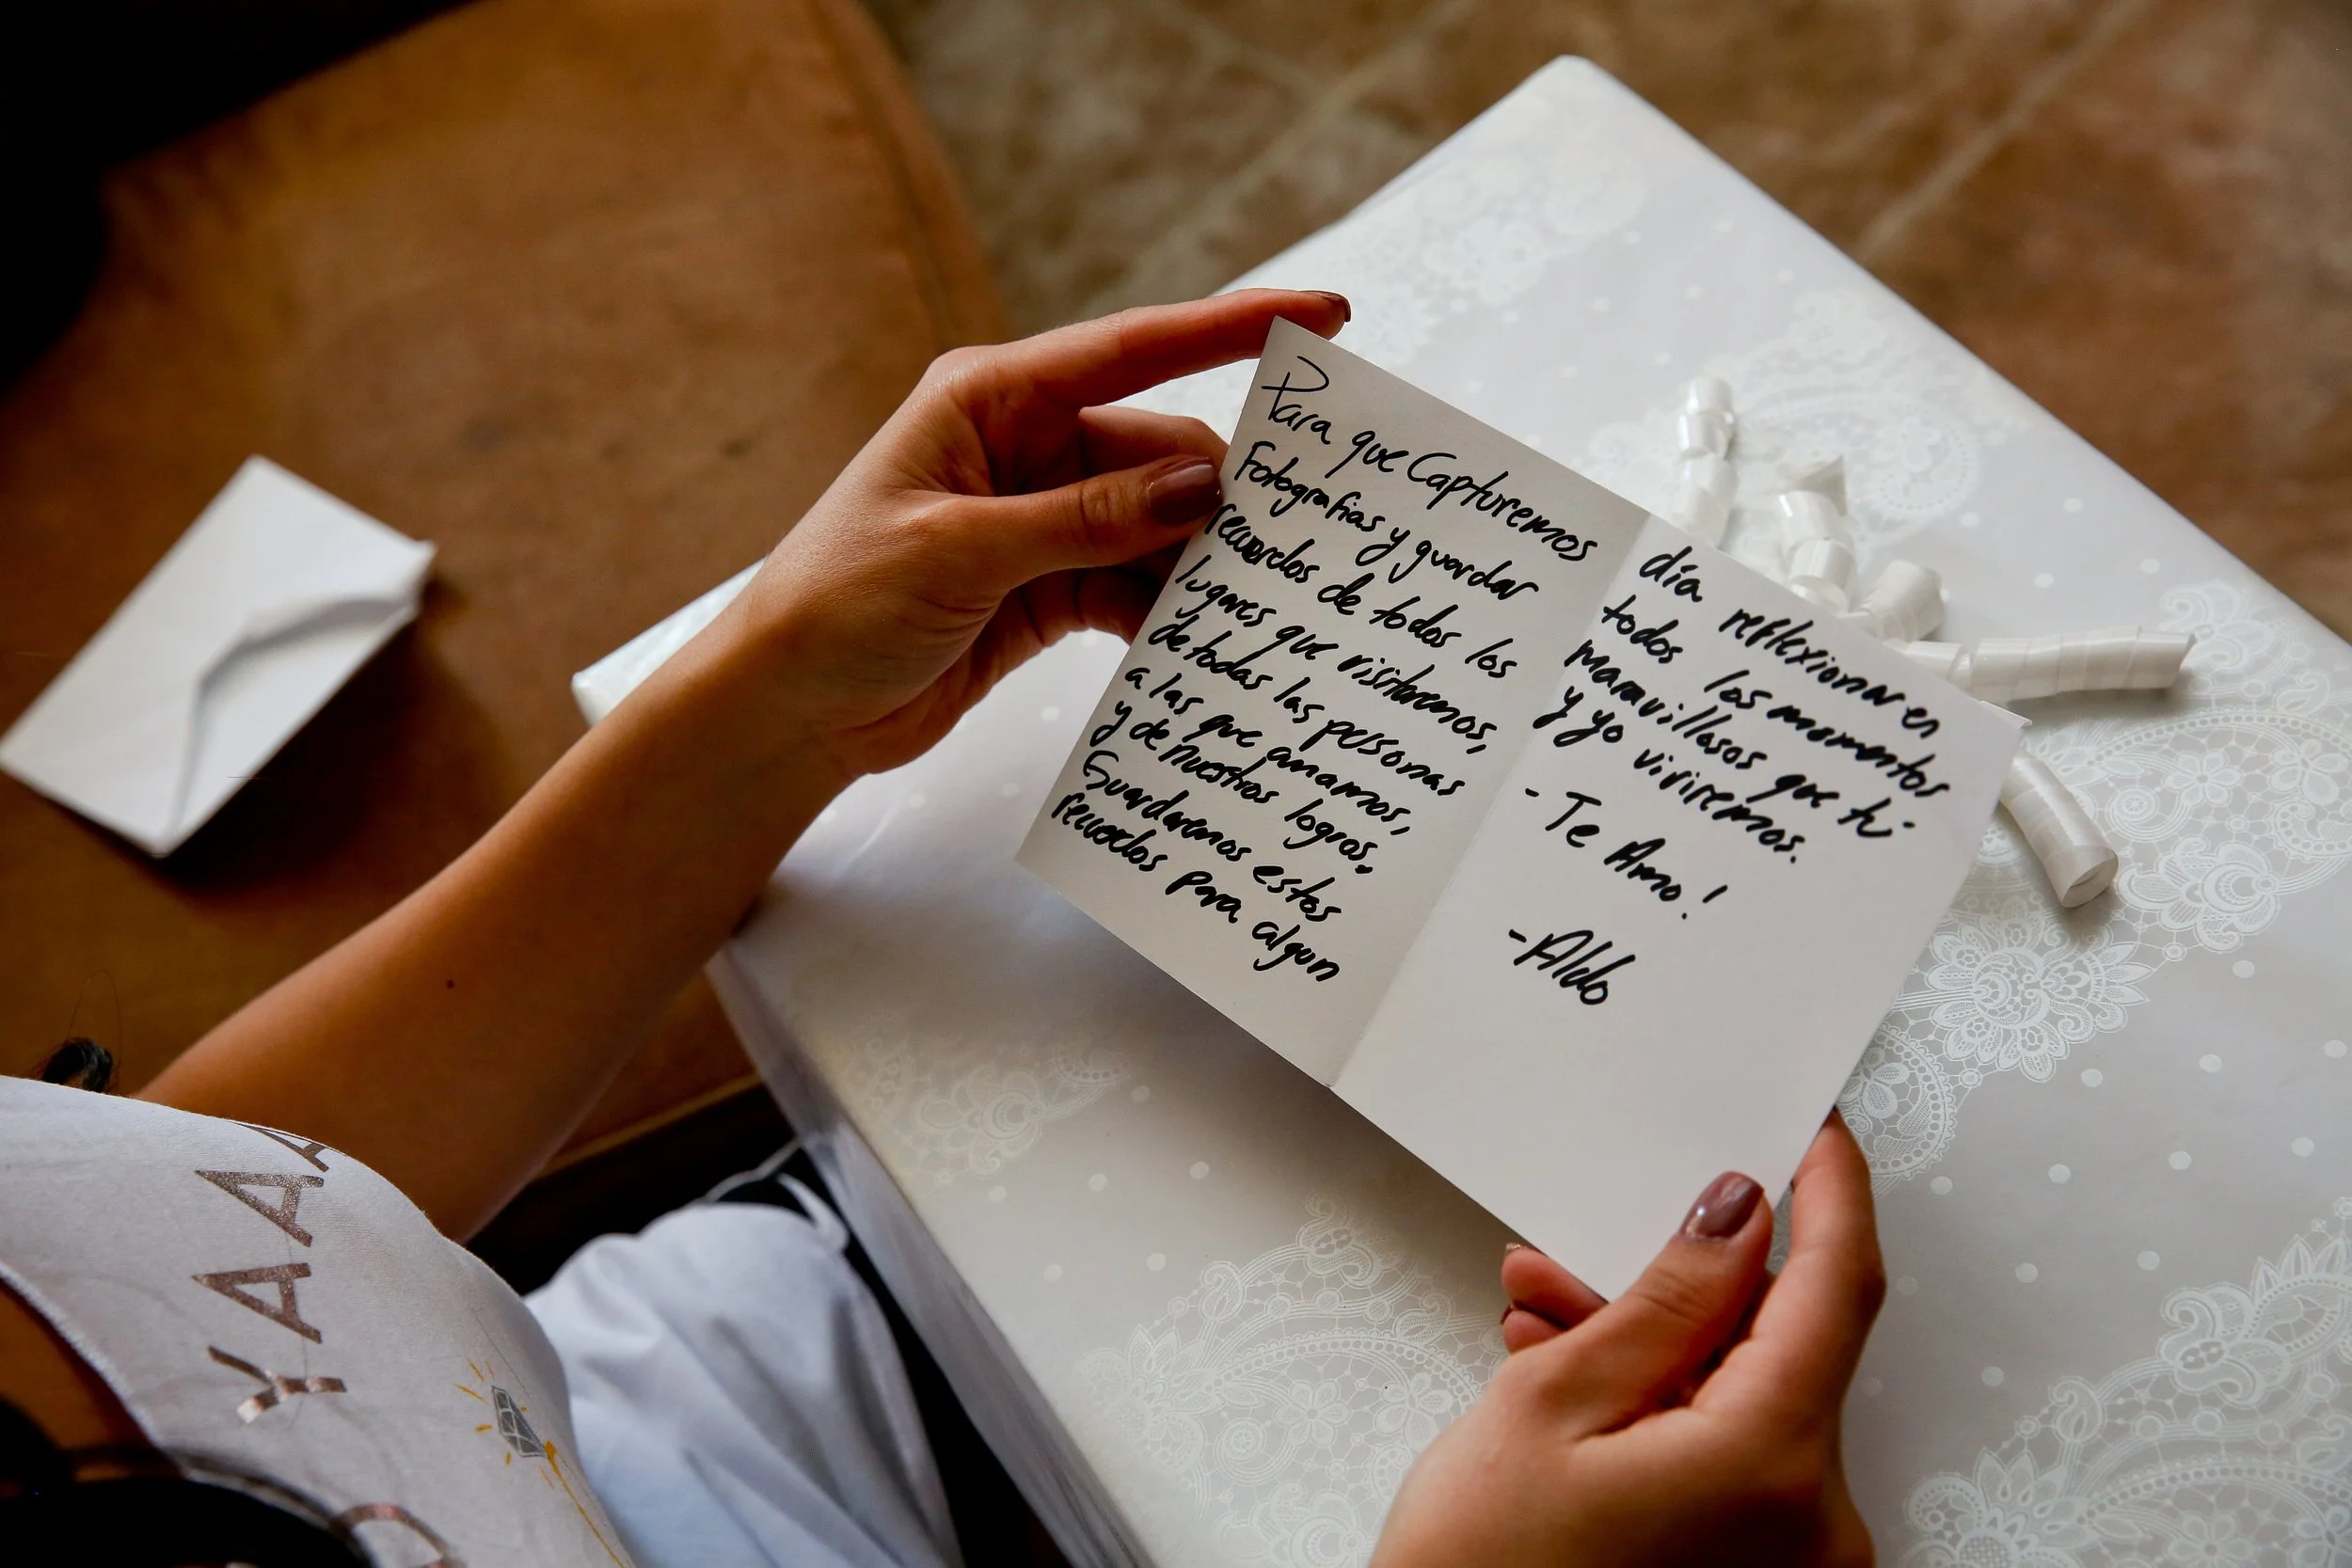 Para que Capturemos
Fotografias y guardar
recuerdos de todos los
lugares que visitaremos,
de todas las personas
a las que amamos,
y de nuestros logros.
Guardaremos estos
recuerdos para algun
día reflexionar en
todos los momentos
maravillosos que tú
y yo viviremos.
- Te Amo!
- Aldo
YAAA